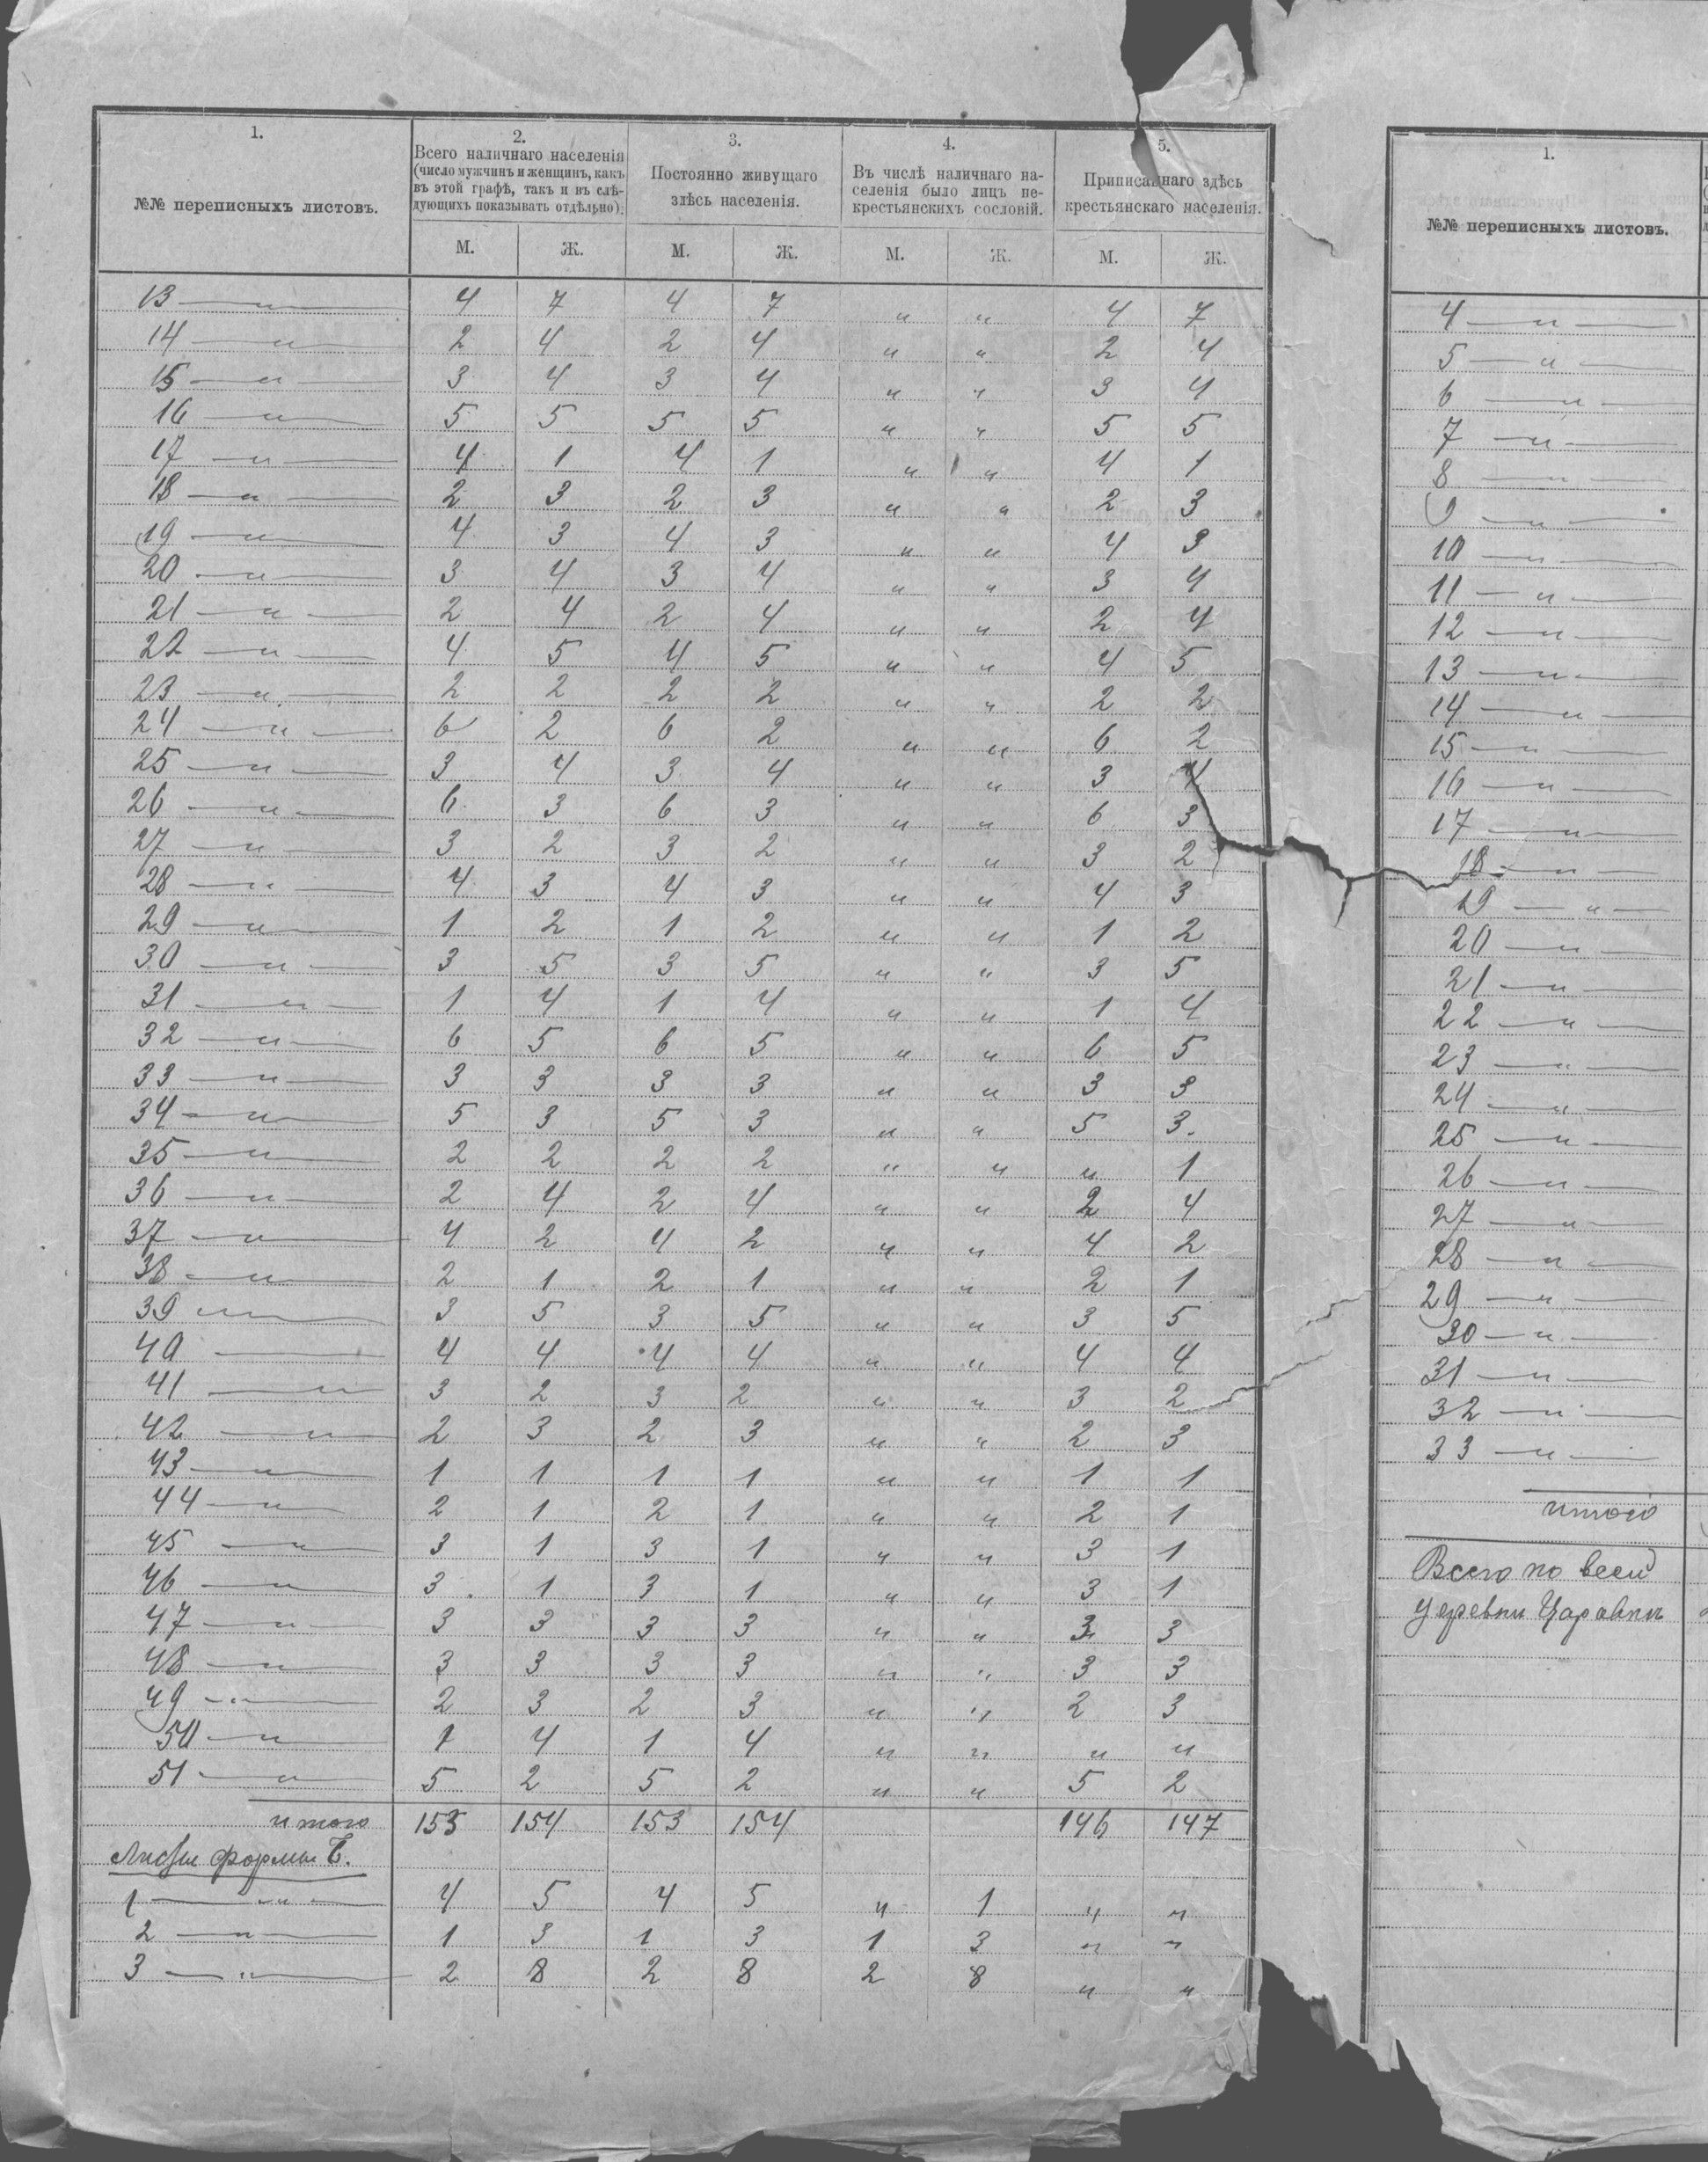 1.
№№ переписныхъ листовъ.
2.
Всего наличнаго населенія
(число мужчинъ и женщинъ, какъ
въ этой графѣ, такъ и въ слѣ-
дующихъ показывать отдѣльно).
3.
Постоянно живущаго
здѣсь населенія.
4.
Въ числѣ наличнаго на-
селенія было лицъ не-
крестьянскихъ сословій.
5.
Приписаннаго здѣсь
крестьянскаго населенія.
М. Ж. М. Ж. М. Ж. М. Ж.
13 — „ — 4 7 4 7 „ „ 4 7
14 — „ — 2 4 2 4 „ „ 2 4
15 — „ — 3 4 3 4 „ „ 3 4
16 — „ — 5 5 5 5 „ „ 5 5
17 — „ — 4 1 4 1 „ „ 4 1
18 — „ — 2 3 2 3 „ „ 2 3
19 — „ — 4 3 4 3 „ „ 4 3
20 — „ — 3 4 3 4 „ „ 3 4
21 — „ — 2 4 2 4 „ „ 2 4
22 — „ — 4 5 4 5 „ „ 4 5
23 — „ — 2 2 2 2 „ „ 2 2
24 — „ — 6 2 6 2 „ „ 6 2
25 — „ — 3 4 3 4 „ „ 3 4
26 — „ — 6 3 6 3 „ „ 6 3
27 — „ — 3 2 3 2 „ „ 3 2
28 — „ — 4 3 4 3 „ „ 4 3
29 — „ — 1 2 1 2 „ „ 1 2
30 — „ — 3 5 3 5 „ „ 3 5
31 — „ — 1 4 1 4 „ „ 1 4
32 — „ — 6 5 6 5 „ „ 6 5
33 — „ — 3 3 3 3 „ „ 3 3
34 — „ — 5 3 5 3 „ „ 5 3.
35 — „ — 2 2 2 2 „ „ „ 1
36 — „ — 2 4 2 4 „ „ 2 4
37 — „ — 4 2 4 2 „ „ 4 2
38 — „ — 2 1 2 1 „ „ 2 1
39 — „ — 3 5 3 5 „ „ 3 5
40 — 4 4 4 4 „ „ 4 4
41 — „ — 3 2 3 2 „ „ 3 2
42 — „ — 2 3 2 3 „ „ 2 3
43 — „ — 1 1 1 1 „ „ 1 1
44 — „ — 2 1 2 1 „ „ 2 1
45 — „ — 3 1 3 1 „ „ 3 1
46 — „ — 3 1 3 1 „ „ 3 1
47 — „ — 3 3 3 3 „ „ 3 3
48 — „ — 3 3 3 3 „ „ 3 3
49 — „ — 2 3 2 3 „ „ 2 3
50 — „ — 1 4 1 4 „ „ „ „
51 — „ — 5 2 5 2 „ „ 5 2
итого 153 154 153 154 146 147
Листы формы Б.
1 — „ — 4 5 4 5 „ 1 „ „
2 — „ — 1 3 1 3 1 3 „ „
3 — „ — 2 8 2 8 2 8 „ „
1.
№№ переписныхъ листовъ.
4 — „ —
5 — „ —
6 — „ —
7 — „ —
8 — „ —
9 — „ —
10 — „ —
11 — „ —
12 — „ —
13 — „ —
14 — „ —
15 — „ —
16 — „ —
17 — „ —
18 — „ —
19 — „ —
20 — „ —
21 — „ —
22 — „ —
23 — „ —
24 — „ —
25 — „ —
26 — „ —
27 — „ —
28 — „ —
29 — „ —
30 — „ —
31 — „ —
32 — „ —
33 — „ —
итого
Всего по всей